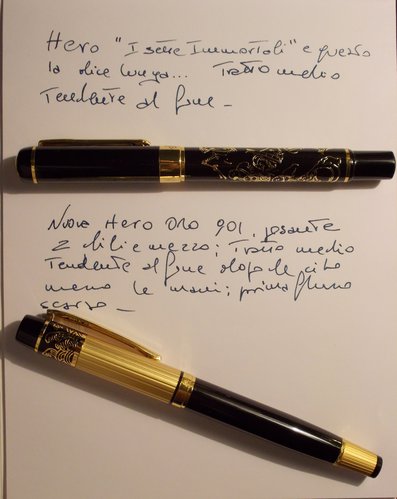 Hero "I sette Immortali" e questo
la dice lunga... Tratto medio
Tendente al fine -
Nuova Hero Oro 901, pesante
2 bilie mezzo; Tratto medio
Tendente al fine dopo le
meno le mani; prima flusso
scarso -